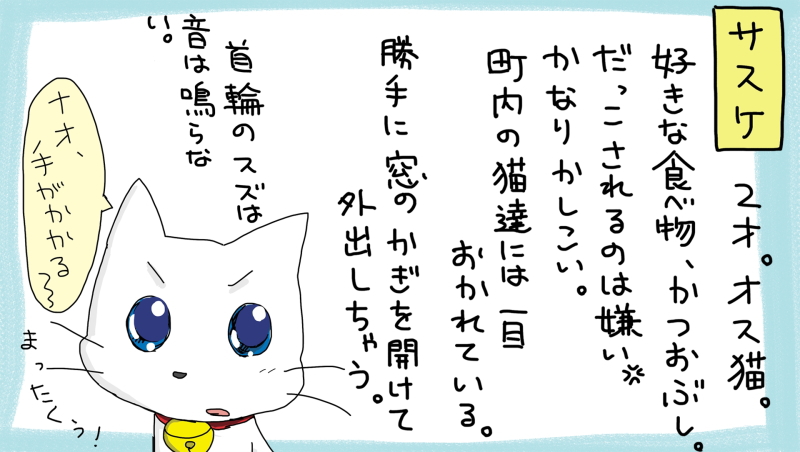 サスケ
2才。オス猫。
好きな食べ物、かつおぶし。
だっこされるのは嫌い
かなりかしこい。
町内の猫達には一目
おかれている。
勝手に窓のかぎを開けて
外出しちゃう。
首輪のスズは
音は鳴らな
い。
ナオ、
手がかかる〜〜
まったくっ!